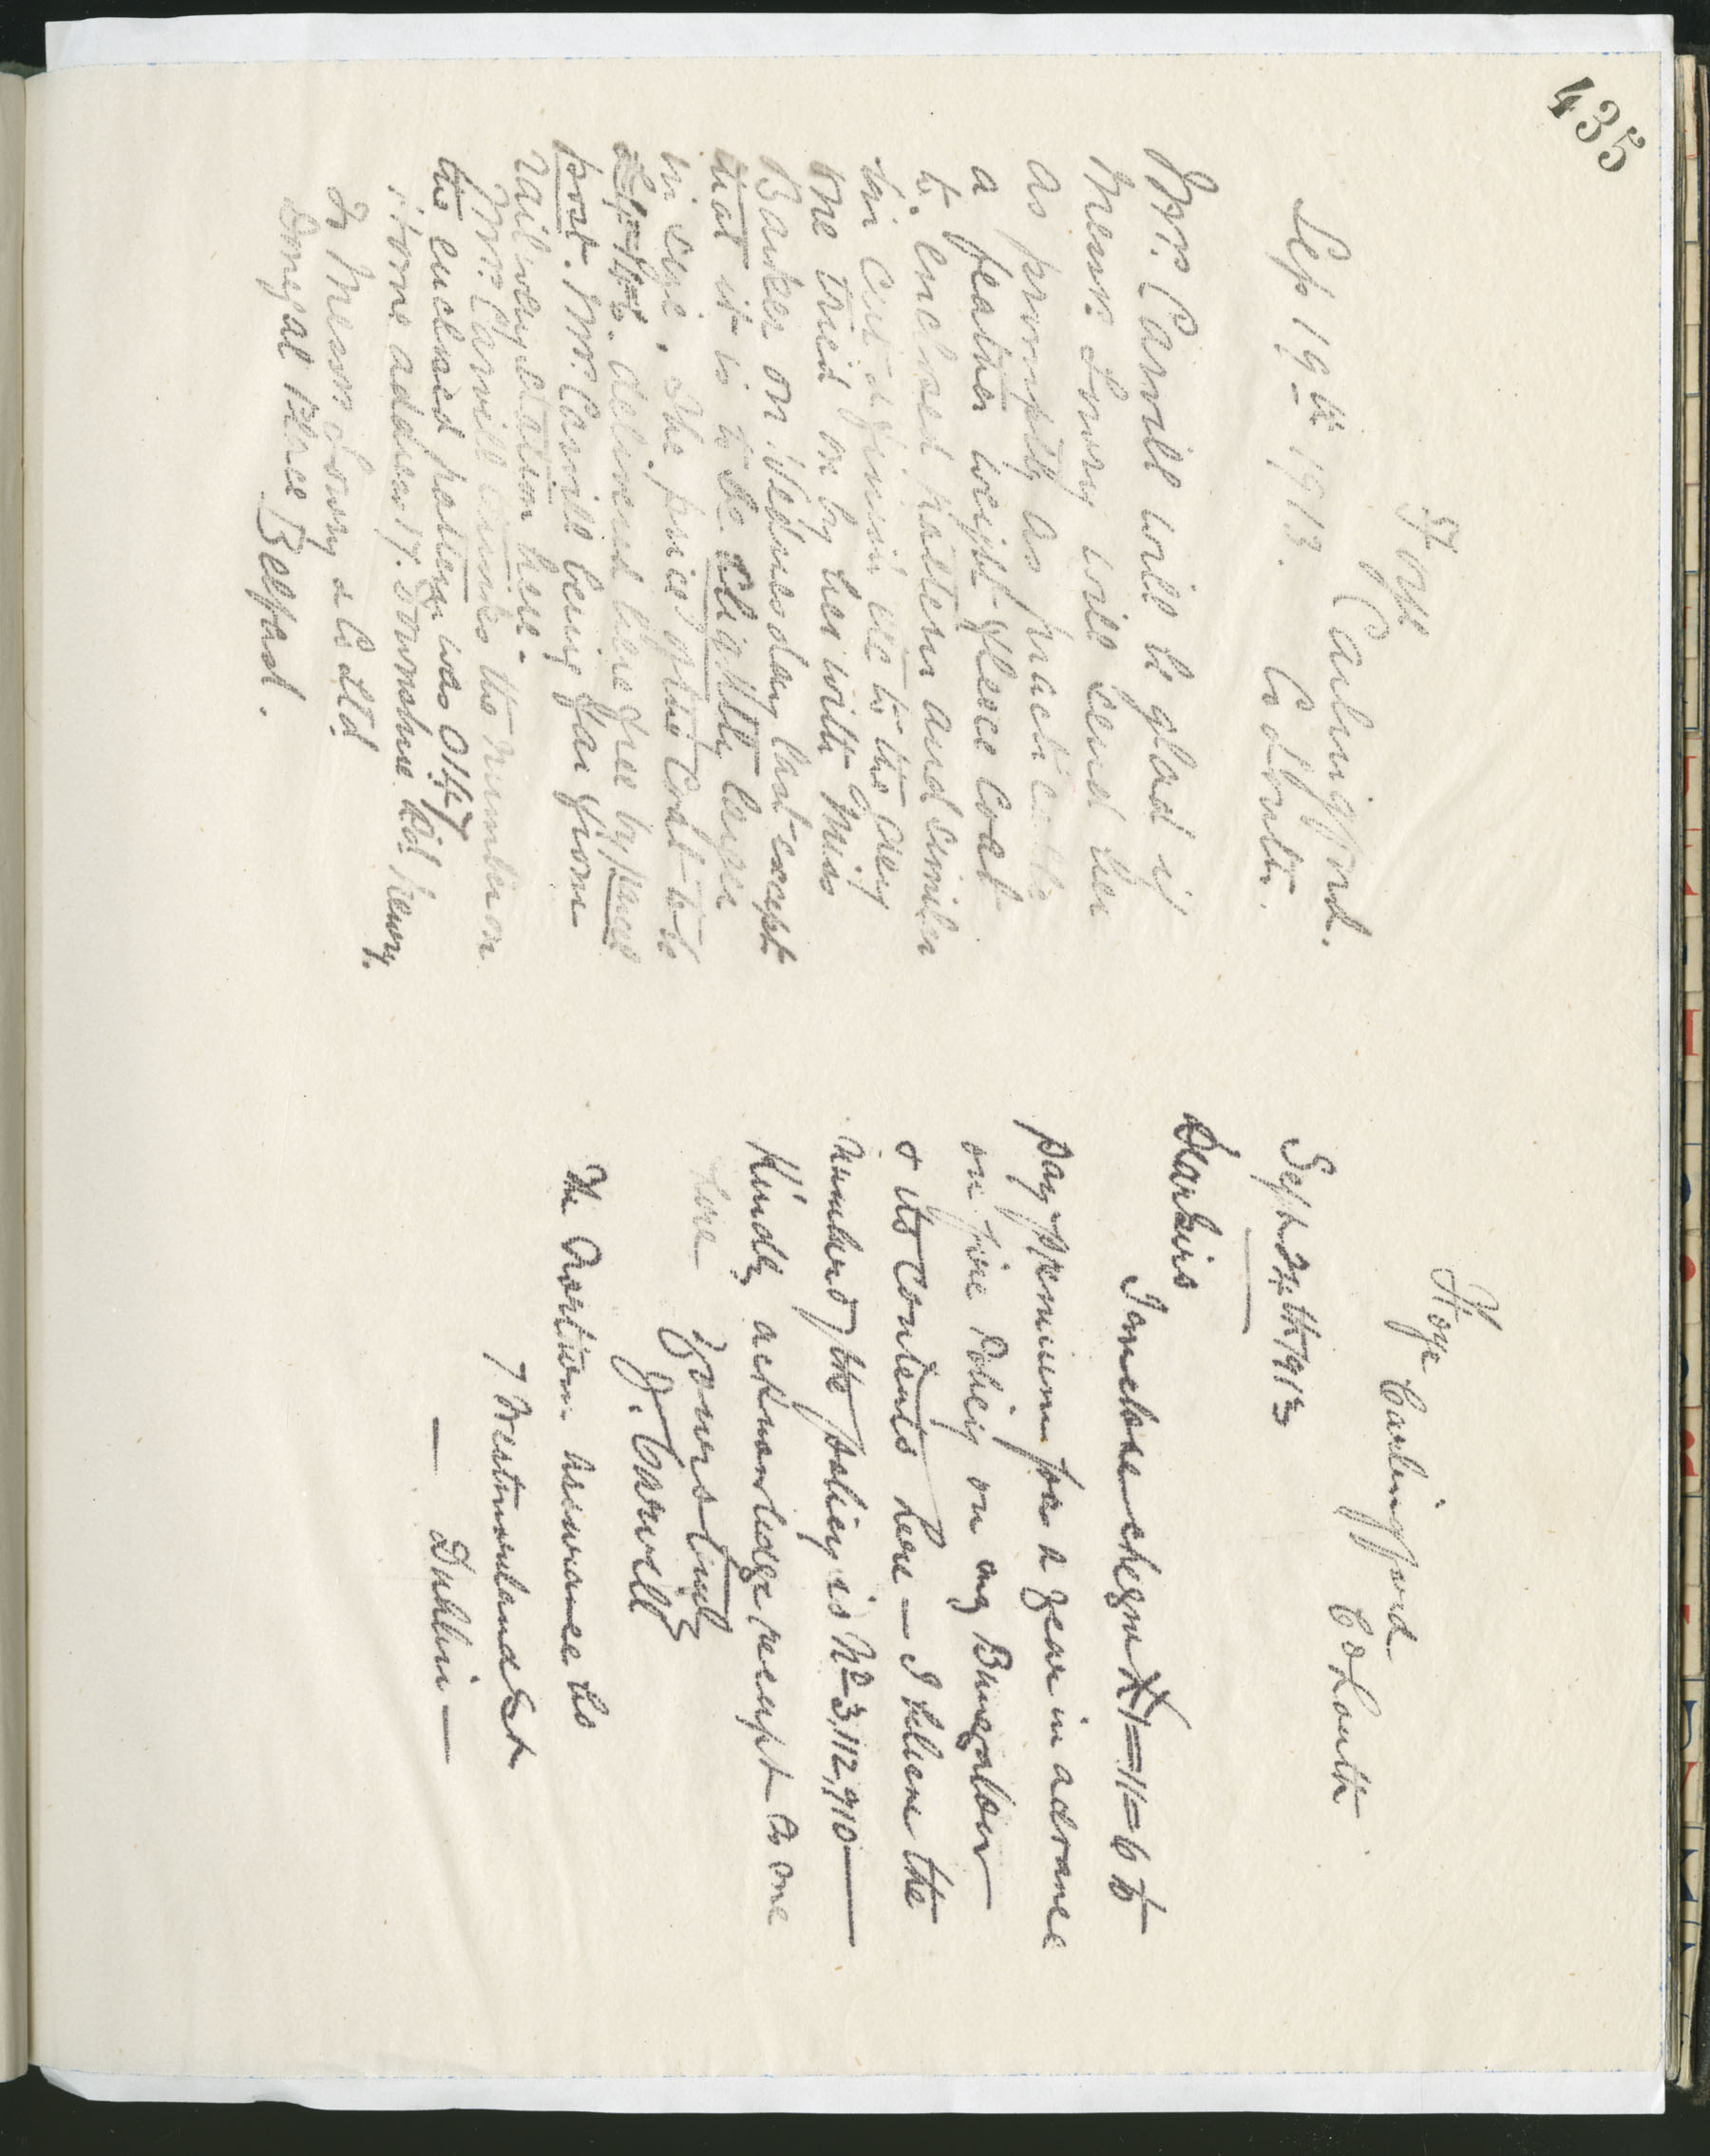 435
Foye
Carlingford.
Sep 19th 1913. Co Louth.
Mrs. Carvill will be glad if
Messrs. Lowry will send her
as promptly as practicable
a feather weight fleece coat
to enclosed pattern and similar
in cut & finish &c to the grey
one tried on by her with Miss
Banker on Wednesday last except
that it is to be slightly larger
in size, the price of the coat to be
delivered here free by parcel
post. Mrs. Carvill being far from
railway station here.
Mrs. Carvill thinks the number on
the enclosed pattern was 0147
Home address 17. Downshire Rd. Newry.
To Messrs Lowry & Co Ltd
Donegal Place Belfast.
Foye Carlingford
Co Louth
Sept 24th 1913
Dear Sirs
I enclose cheque £1=11=6 to
pay premium for a year in advance
on fire Policy on my Bungalow
& its contents here — I believe the
number of the policy is No 3,112,910 —
Kindly acknowledge receipt to me
here
Yours truly
J. Carvill
The Northern Assurance Co
7 Westmoreland St
— Dublin —